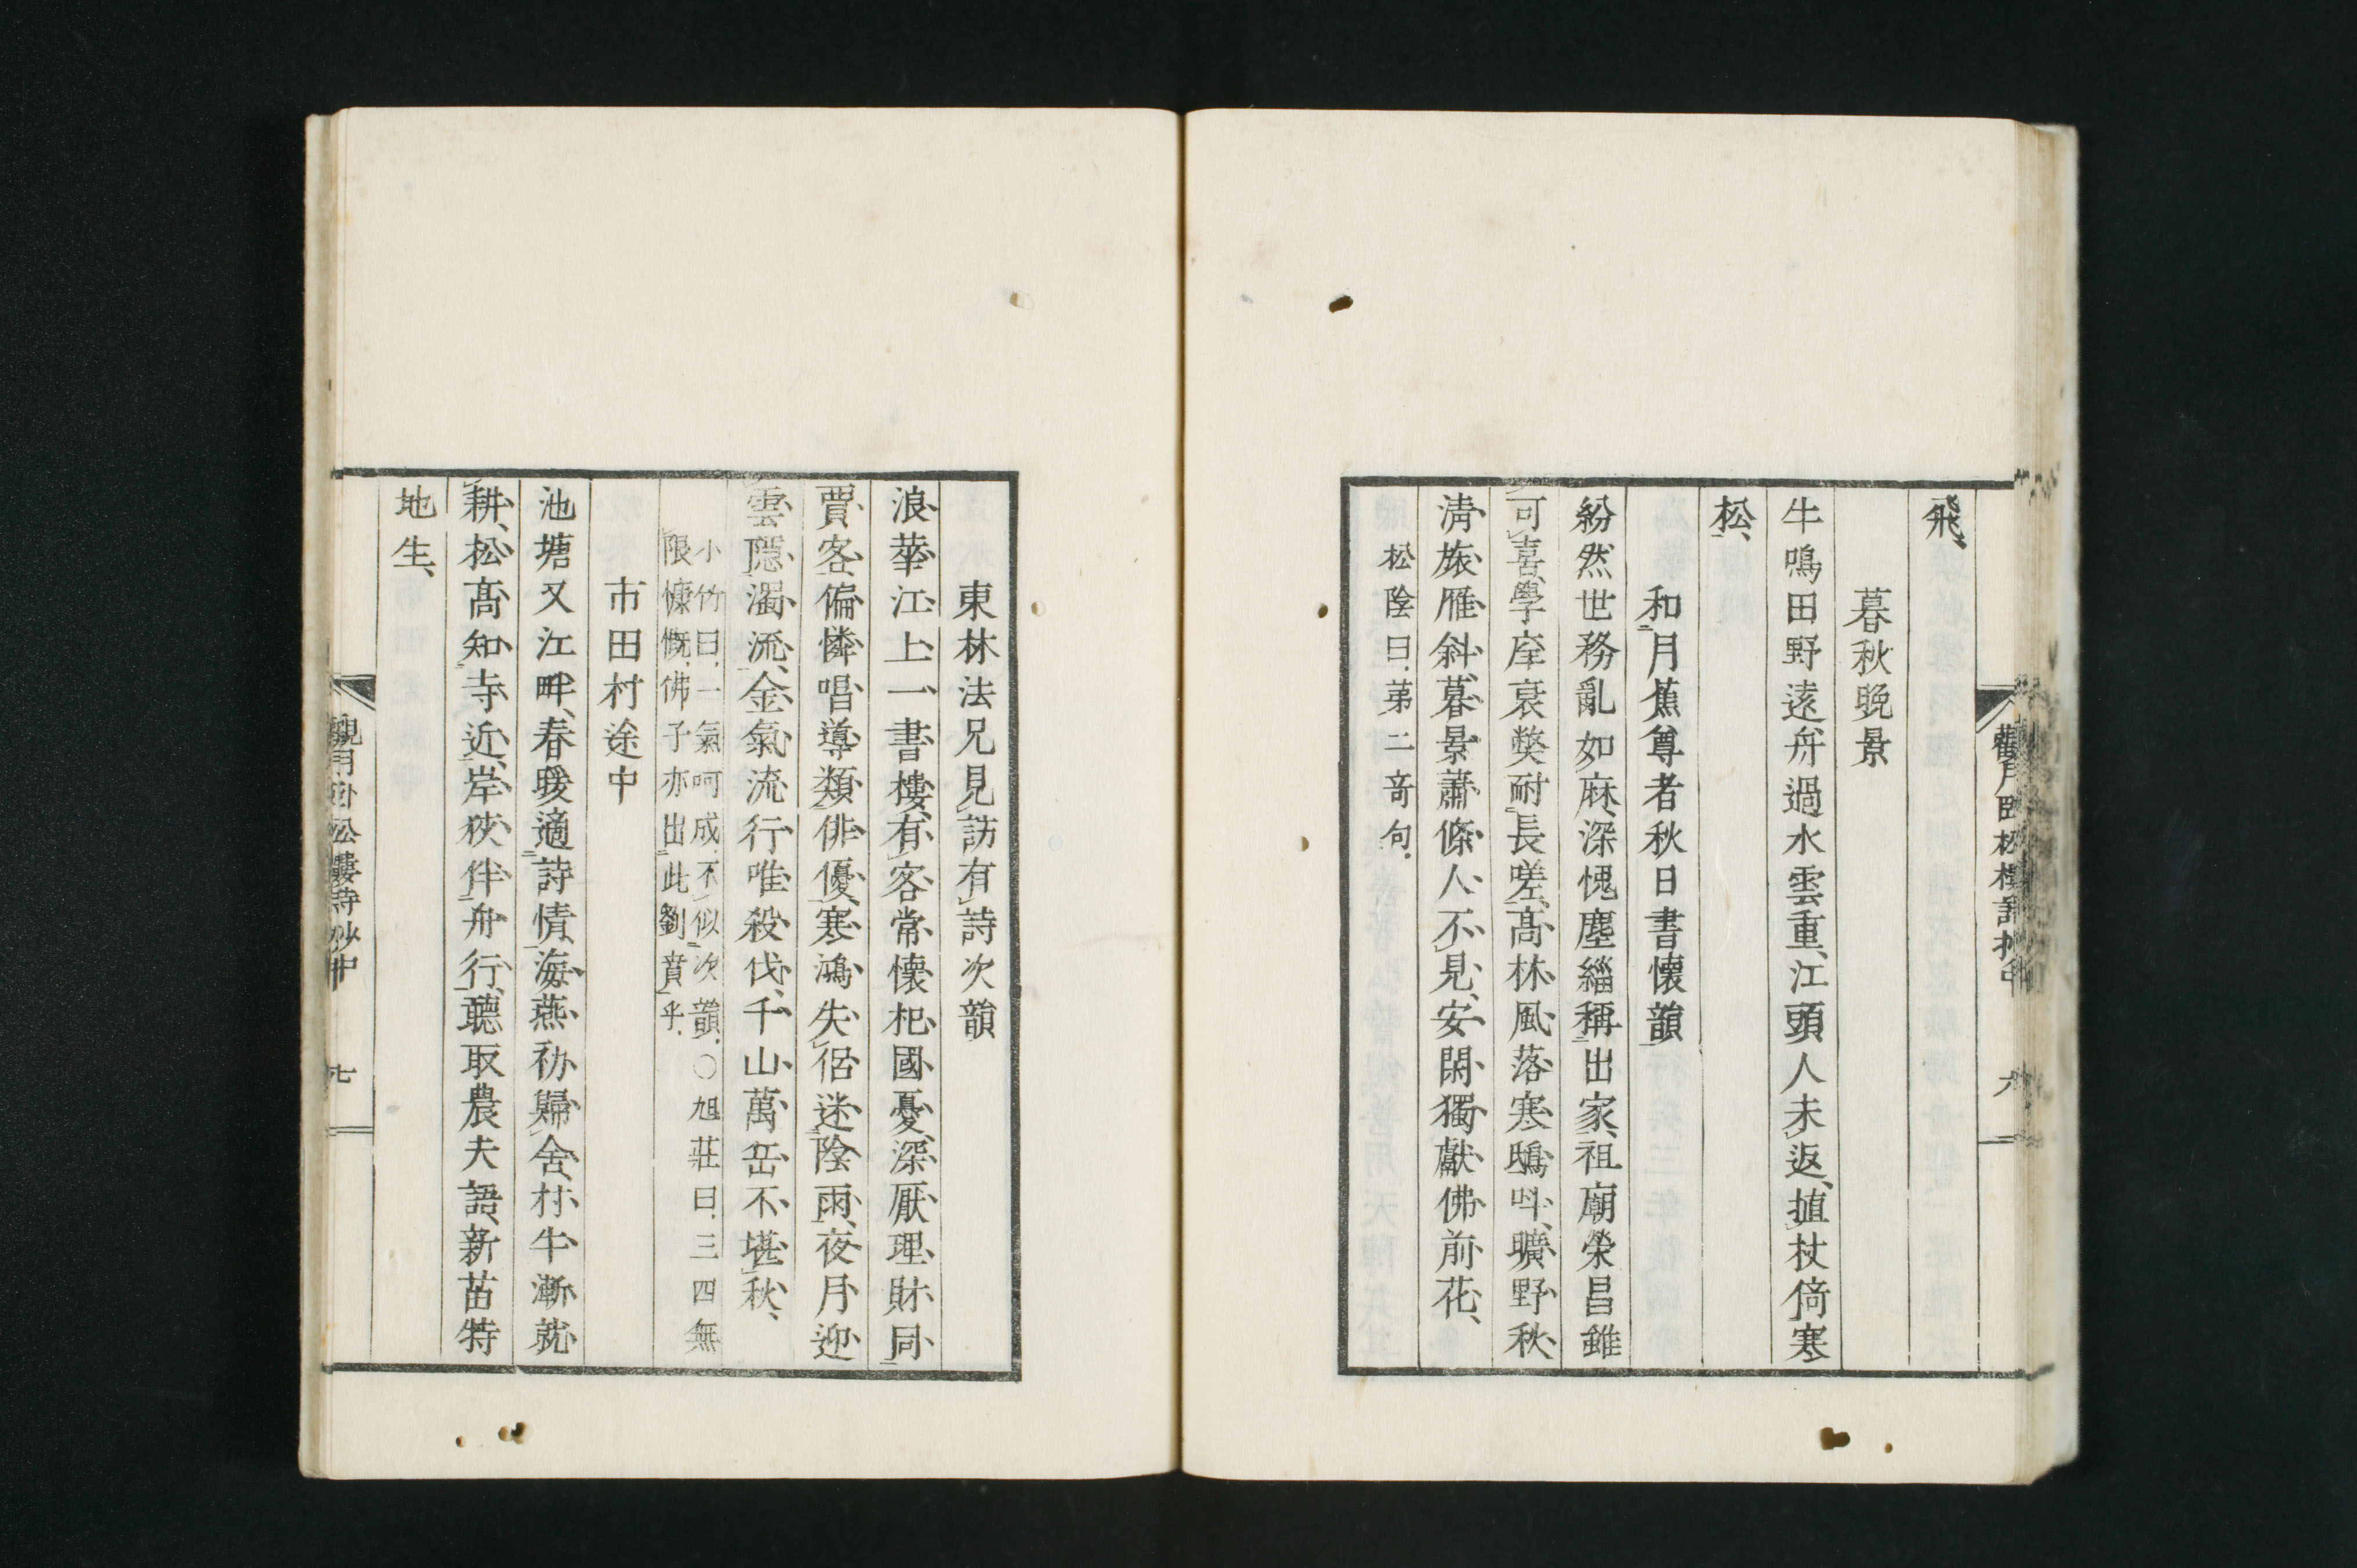 飛、
暮秋晚景
牛鳴田野遠、舟過水雲重、江頭人未返、植杖倚寒
松、
和月蕉尊者秋日書懷韻
紛然世務亂如麻、深愧塵緇稱出家、祖廟榮昌雖
可喜、學庠衰獘耐長嗟、高林風落寒鴟呌、曠野秋
淸旅雁斜、暮景蕭條人不見、安閑獨獻佛前花、
松陰曰、第二奇句、
觀月臥松樓詩抄中 六
東林法兄見訪有詩次韻
浪華江上一書樓、有客常懷杞國憂、深厭理財同
賈客、偏憐唱導類俳優、寒鴻失侶迷陰雨、夜月迎
雲隱濁流、金氣流行唯殺伐、千山萬岳不堪秋、
小竹曰、一氣呵成、不似次韻、〇旭莊曰、三四無
限慷慨、佛子亦出此劉蕡乎、
市田村途中
池塘又江畔、春暖適詩情、海燕初歸舍、村牛漸就
耕、松高知寺近、岸狹伴舟行、聽取農夫語、新苗特
地生、
觀月臥松樓詩抄中 七